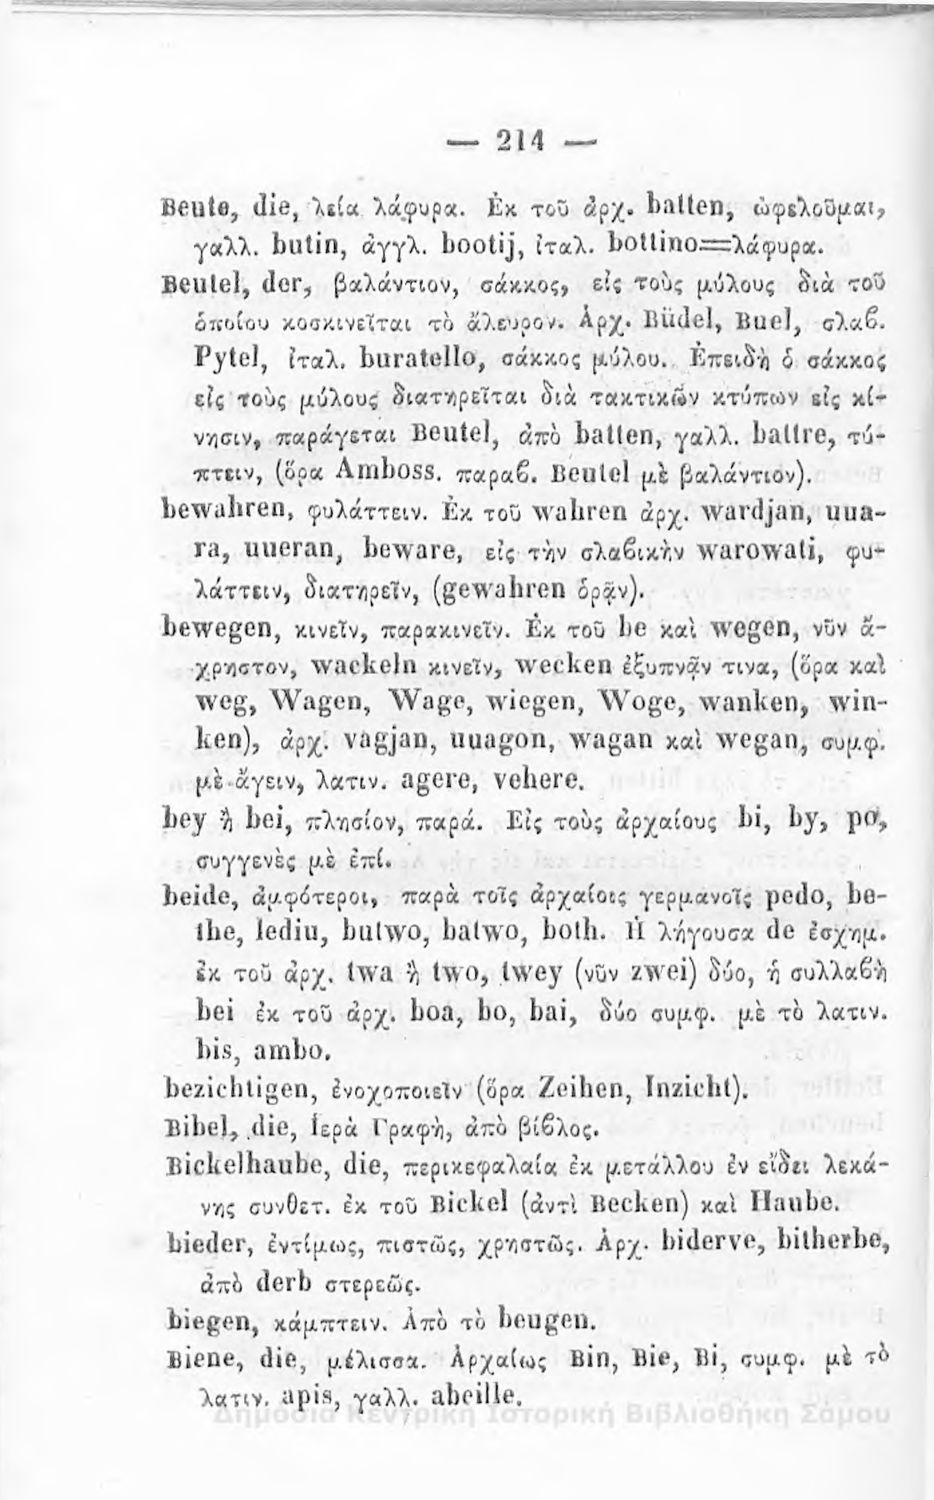 — 214 —
Beute, die, λεία λάφυρα. Ἐκ τοῦ ἀρχ. batten, ὠφελοῦμαι,
γαλλ. butin, ἀγγλ. bootij, ἰταλ. bottino=λάφυρα.
Beutel, der, βαλάντιον, σάκκος, εἰς τοὺς μύλους διὰ τοῦ
ὁποίου κοσκινεῖται τὸ ἄλευρον. Ἀρχ. Büdel, Buel, σλαϐ.
Pytel, ἰταλ. buratello, σάκκος μύλου. Ἐπειδὴ ὁ σάκκος
εἰς τοὺς μύλους διατηρεῖται διὰ τακτικῶν κτύπων εἰς κί-
νησιν, παράγεται Beutel, ἀπὸ batten, γαλλ. battre, τύ-
πτειν, (ὅρα Amboss. παραϐ. Beutel μὲ βαλάντιον).
bewahren, φυλάττειν. Ἐκ τοῦ wahren ἀρχ. wardjan, uua-
ra, uueran, beware, εἰς τὴν σλαϐικὴν warowati, φυ-
λάττειν, διατηρεῖν, (gewahren ὁρᾷν).
bewegen, κινεῖν, παρακινεῖν. Ἐκ τοῦ be καὶ wegen, νῦν ἄ-
χρηστον, wackeln κινεῖν, wecken ἐξυπνᾷν τινα, (ὅρα καὶ
weg, Wagen, Wage, wiegen, Woge, wanken, win-
ken), ἀρχ. vagjan, uuagon, wagan καὶ wegan, συμφ.
μὲ ἄγειν, λατιν. agere, vehere.
bey ἢ bei, πλησίον, παρά. Εἰς τοὺς ἀρχαίους bi, by, po,
συγγενὲς μὲ ἐπί.
beide, ἀμφότεροι, παρὰ τοῖς ἀρχαίοις γερμανοῖς pedo, be-
the, lediu, butwo, batwo, both. Ἡ λήγουσα de ἐσχημ.
ἐκ τοῦ ἀρχ. twa ἢ two, twey (νῦν zwei) δύο, ἡ συλλαϐὴ
bei ἐκ τοῦ ἀρχ. boa, bo, bai, δύο συμφ. μὲ τὸ λατιν.
bis, ambo.
bezichtigen, ἐνοχοποιεῖν (ὅρα Zeihen, Inzicht).
Bibel, die, Ἱερὰ Γραφὴ, ἀπὸ βίϐλος.
Bickelhaube, die, περικεφαλαία ἐκ μετάλλου ἐν εἴδει λεκά-
νης συνθετ. ἐκ τοῦ Bickel (ἀντὶ Becken) καὶ Haube.
bieder, ἐντίμως, πιστῶς, χρηστῶς. Ἀρχ. biderve, bitherbe,
ἀπὸ derb στερεῶς.
biegen, κάμπτειν. Ἀπὸ τὸ beugen.
Biene, die, μέλισσα. Ἀρχαίως Bin, Bie, Bi, συμφ. μὲ τὸ
λατιν. apis, γαλλ. abeille.
Δημόσια Κεντρική Ιστορική Βιβλιοθήκη Σάμου